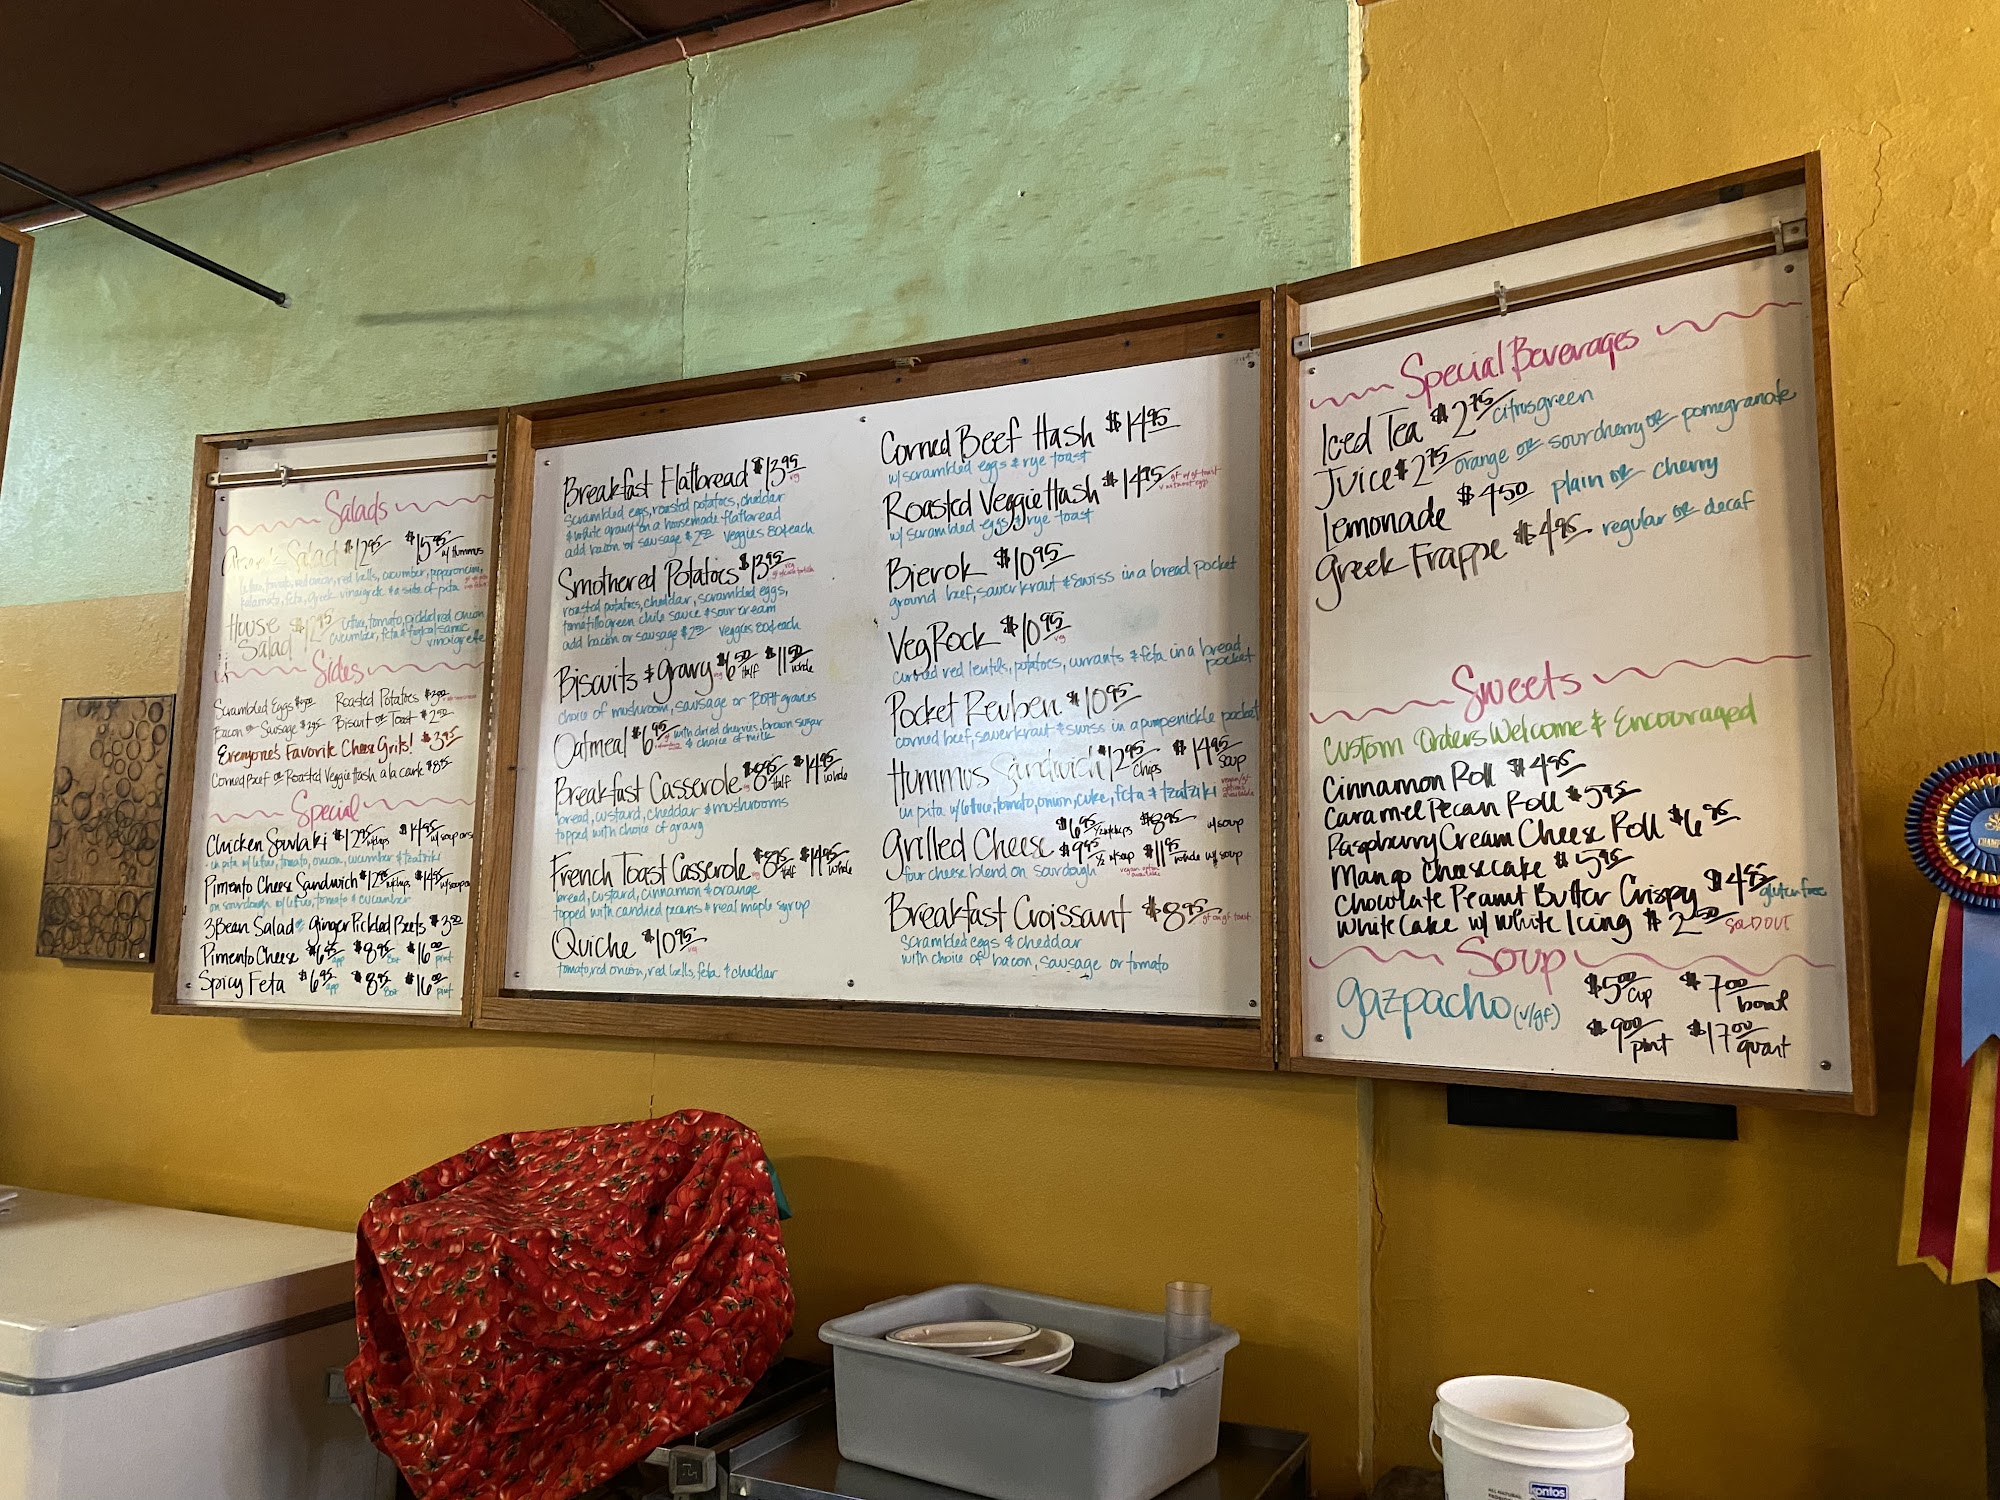 Salads
Salad $12.95 $15.95 w/ Hummus
tomato, red onion, red bells, cucumber, pepperoncini,
kalamata, feta, greek vinaigrette & a side of pita
House Salad $12.95
lettuce, tomato, pickled red onion
cucumber, feta &
vinaigrette
Sides
Scrambled Eggs Roasted Potatoes
Bacon or Sausage $3.95 Biscuit or Toast $2.50
Everyone's Favorite Cheese Grits! $3.95
Corned Beef or Roasted Veggie Hash a la carte $8.95
Special
Chicken Souvlaki $12.95 w/chips $14.95 w/ soup or s
- in pita w/ lettuce, tomato, onion, cucumber & tzatziki
Pimento Cheese Sandwich $12.95 w/chips $14.95 w/soup or
on sourdough w/ lettuce, tomato & cucumber
3 Bean Salad or Ginger Pickled Beets $3.50
Pimento Cheese $6.95 app $8.95 8oz $16.00 pint
Spicy Feta $6.95 app $8.95 8oz $16.00 pint
Breakfast Flatbread $13.95 veg
Scrambled eggs, roasted potatoes, cheddar
& white gravy on a housemade flatbread
add bacon or sausage $2.00 veggies 80¢ each
Smothered Potatoes $13.95 veg
roasted potatoes, cheddar, scrambled eggs,
tomatillo green chile sauce & sour cream
add bacon or sausage $2.00 veggies 80¢ each
Biscuits & Gravy veg $6.50 Half $11.50 whole
choice of mushroom, sausage or BOTH gravies
Oatmeal $6.95 with dried cherries, brown sugar
& choice of milk
Breakfast Casserole veg $8.95 Half $14.95 whole
bread, custard, cheddar & mushrooms
topped with choice of gravy
French Toast Casserole veg $8.95 Half $14.95 whole
bread, custard, cinnamon & orange
topped with candied pecans & real maple syrup
Quiche $10.95 veg
tomato, red onion, red bells, feta & cheddar
Corned Beef Hash $14.95
w/ scrambled eggs & rye toast
Roasted Veggie Hash $14.95 gf w/ gf toast
v without eggs
w/ scrambled eggs & rye toast
Bierok $10.95
ground beef, sauerkraut & swiss in a bread pocket
Veg Rock $10.95 veg
curried red lentils, potatoes, currants & feta in a bread
pocket
Pocket Reuben $10.95
corned beef, sauerkraut & swiss in a pumpernickle pocket
Hummus Sandwich $12.95 chips $14.95 soup
in pita w/ lettuce, tomato, onion, cuke, feta & tzatziki vegan/gf
options
available
Grilled Cheese $6.95 1/2 w/chips $8.95 w/ soup
$9.95 1/2 w/ soup $11.95 whole w/ soup
four cheese blend on sourdough vegan option
available
Breakfast Croissant $8.95 gf on gf toast
Scrambled eggs & cheddar
with choice of bacon, sausage or tomato
Special Beverages
Iced Tea $2.75 citrus green
Juice $2.75 orange or sour cherry or pomegranate
Lemonade $4.50 plain or cherry
Greek Frappe $4.95 regular or decaf
Sweets
Custom Orders Welcome & Encouraged
Cinnamon Roll $4.95
Caramel Pecan Roll $5.95
Raspberry Cream Cheese Roll $6.95
Mango Cheesecake $5.95
Chocolate Peanut Butter Crispy $4.95 gluten free
White Cake w/ White Icing $2.50 SOLD OUT
Soup
Gazpacho (v/gf) $5.00 cup $7.00 bowl
$9.00 pint $17.00 quart
kontos